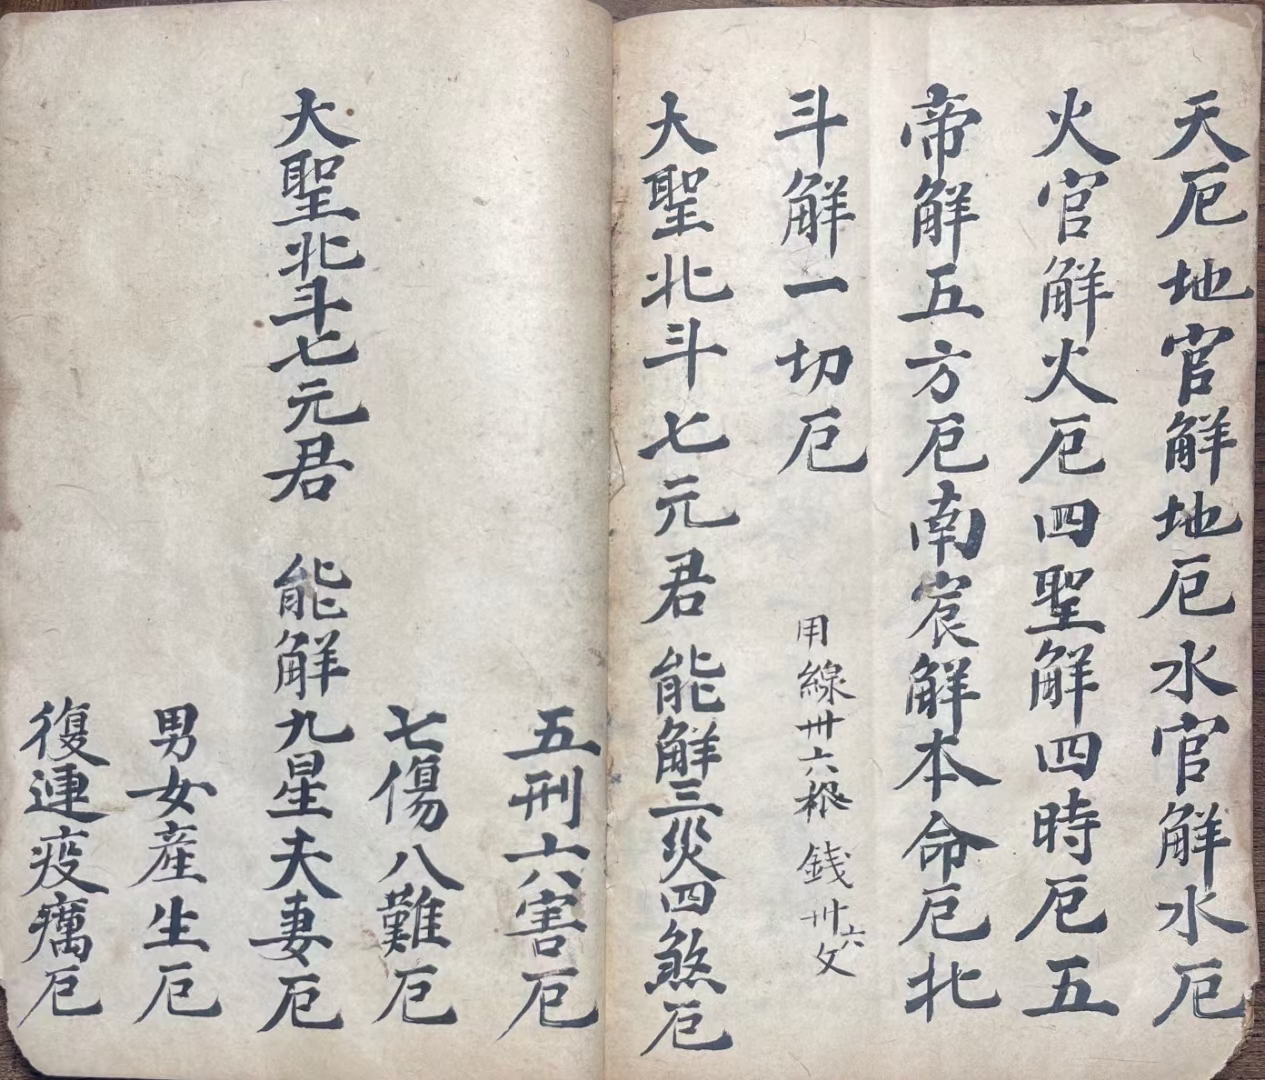 天厄地官解地厄水官解水厄
火官解火厄四聖解四時厄五
帝解五方厄南宸解本命厄北
斗解一切厄
用線卅六根 錢卅六文
大聖北斗七元君 能解三災四煞厄
五刑六害厄
七傷八難厄
大聖北斗七元君 能解九星夫妻厄
男女產生厄
復連疫癘厄